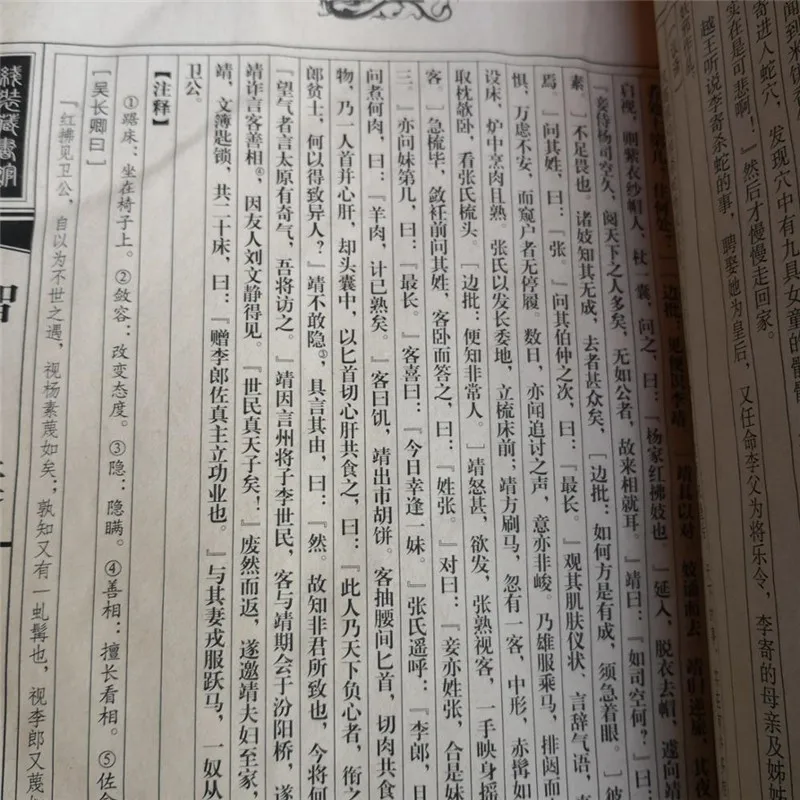 闻到米
寄进入蛇穴，发现穴中有九具女童的
实在是可悲啊！”然后才慢慢走回家。
越王听说李寄杀蛇的事，聘娶她为皇后，又任命李父为将乐令，李寄的母亲及姊
启视，则紫衣纱帽人，杖一囊，问之，曰：『杨家红拂妓也。』延入，脱衣去帽，遽向靖
『妾侍杨司空久，阅天下之人多矣，无如公者，故来相就耳。』靖曰：『如司空何？』曰：
素。』不足畏也。诸妓知其无成，去者甚众矣，［边批：如何方是有成，须急着眼。］彼
焉。』问其姓，曰：『张。』问其伯仲之次，曰：『最长。』观其肌肤仪状、言辞气语，
惧，万虑不安，而窥户者无停履。数日，亦闻追讨之声，意亦非峻。乃雄服乘马，排闼而
设床，炉中烹肉且熟。张氏以发长委地，立梳床前；靖方刷马，忽有一客，中形，赤髯如
取枕欹卧，看张氏梳头。［边批：便知非常人。］靖怒甚，欲发，张熟视客，一手映身摇
客。』急梳毕，敛衽前问其姓，客卧而答之，曰：『姓张。』对曰：『妾亦姓张，合是妹
三。』亦问妹第几，曰：『最长。』客喜曰：『今日幸逢一妹。』张氏遥呼：『李郎，且
问煮何肉，曰：『羊肉，计已熟矣。』客曰饥，靖出市胡饼。客抽腰间匕首，切肉共食
物，乃一人首并心肝，却头囊中，以匕首切心肝共食之，曰：『此人乃天下负心者，衔之
郎贫士，何以得致异人？』靖不敢隐③，具言其由，曰：『然。故知非君所致也，今将何
『望气者言太原有奇气，吾将访之。』靖因言州将子李世民，客与靖期会于汾阳桥，遂
靖诈言客善相④，因友人刘文静得见。『世民真天子矣！』废然而返，遂邀靖夫妇至家，
靖，文簿匙锁，共二十床，曰：『赠李郎佐真主立功业也。』与其妻戎服跃马，一奴从
卫公。
【注释】
①踞床：坐在椅子上。②敛容：改变态度。③隐：隐瞒。④善相：擅长看相。⑤佐
[吴长卿曰]
『红拂见卫公，自以为不世之遇，视杨素蔑如矣；孰知又有一虬髯也，视李郎又蔑
线装藏书
智